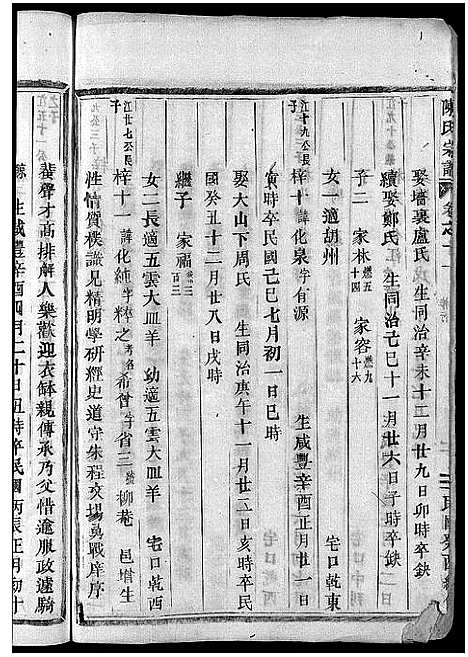 陳氏宗譜
娶墻裏盧氏 生同治辛未十二月廿九日卯時卒缺
續娶鄭氏 生同治己巳十一月廿六日子時卒缺
子二 家林 燃五十四 家容 燃九十六
女一 適胡州 宅口乾東
江十九公長子
梓十 諱化泉 字有源 生咸豐辛酉正月廿一日
寅時卒民國己巳七月初一日巳時
娶大山下周氏 生同治庚午十一月廿二日亥時卒民
國癸丑十二月廿八日戌時
繼子 家福
女二 長適五雲大皿羊 幼適五雲大皿羊 宅口乾西
江廿七公長子
梓十一 諱化純 字粹之 考名希曾 字省三 號柳菴 邑增生
性情質樸識見精明學研經史道守朱程文場鏖戰庠序
蜚聲才高排解人樂歡迎衣缽親傳承乃父惜逾服政遽騎
鯨 生咸豐辛酉四月二十日丑時卒民國丙辰正月初十